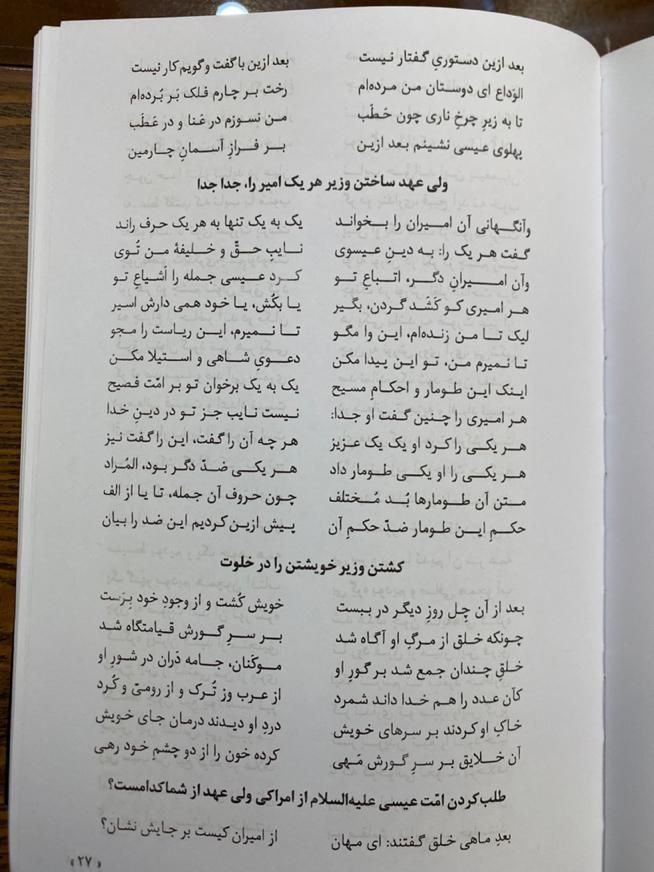 بعد ازین دستوری گفتار نیست بعد ازین با گفت و گویم کار نیست
الوَداع ای دوستان من مرده‌ام رخت بر چارم فلک بَر بُرده‌ام
تا به زیرِ چرخِ ناری چون حَطَب من نسوزم در عَنا و در عَطَب
پهلوی عیسی نشینم بعد ازین بر فرازِ آسمانِ چارمین
ولی عهد ساختن وزیر هر یک امیر را، جدا جدا
وآنگهانی آن امیران را بخواند یک به یک تنها به هر یک حرف راند
گفت هر یک را: به دینِ عیسوی نایبِ حقّ و خلیفهٔ من تُوی
وآن امیرانِ دگر، اتباعِ تو کرد عیسی جمله را اَشیاعِ تو
هر امیری کو کَشَد گردن، بگیر یا بکُش، یا خود همی دارش اسیر
لیک تا من زنده‌ام، این وا مگو تا نمیرم، این ریاست را مجو
تا نمیرم من، تو این پیدا مکن دعویِ شاهی و استیلا مکن
اینک این طومار و احکامِ مسیح یک به یک برخوان تو بر امّت فصیح
هر امیری را چنین گفت او جدا: نیست نایب جز تو در دینِ خدا
هر یکی را کرد او یک یک عزیز هر چه آن را گفت، این را گفت نیز
هر یکی را او یکی طومار داد هر یکی ضدّ دگر بود، المُراد
متن آن طومارها بُد مُختلف چون حروف آن جمله، تا یا از الف
حکمِ این طومار ضدّ حکمِ آن پیش ازین کردیم این ضد را بیان
کشتن وزیر خویشتن را در خلوت
بعد از آن چل روزِ دیگر در ببست خویش کُشت و از وجودِ خود بِرَست
چونکه خلق از مرگِ او آگاه شد بر سرِ گورش قیامتگاه شد
خلقِ چندان جمع شد بر گورِ او موکَنان، جامه دَران در شورِ او
کان عدد را هم خدا داند شمرد از عرب وز تُرک و از رومیّ و کُرد
خاکِ او کردند بر سرهای خویش دردِ او دیدند درمان جای خویش
آن خلایق بر سرِ گورش مَهی کرده خون را از دو چشمِ خود رهی
طلب کردن امّت عیسی علیه‌السلام از امرا کی ولی عهد از شما کدامست؟
بعدِ ماهی خلق گفتند: ای مهان از امیران کیست بر جایش نشان؟
« ۲۷ »